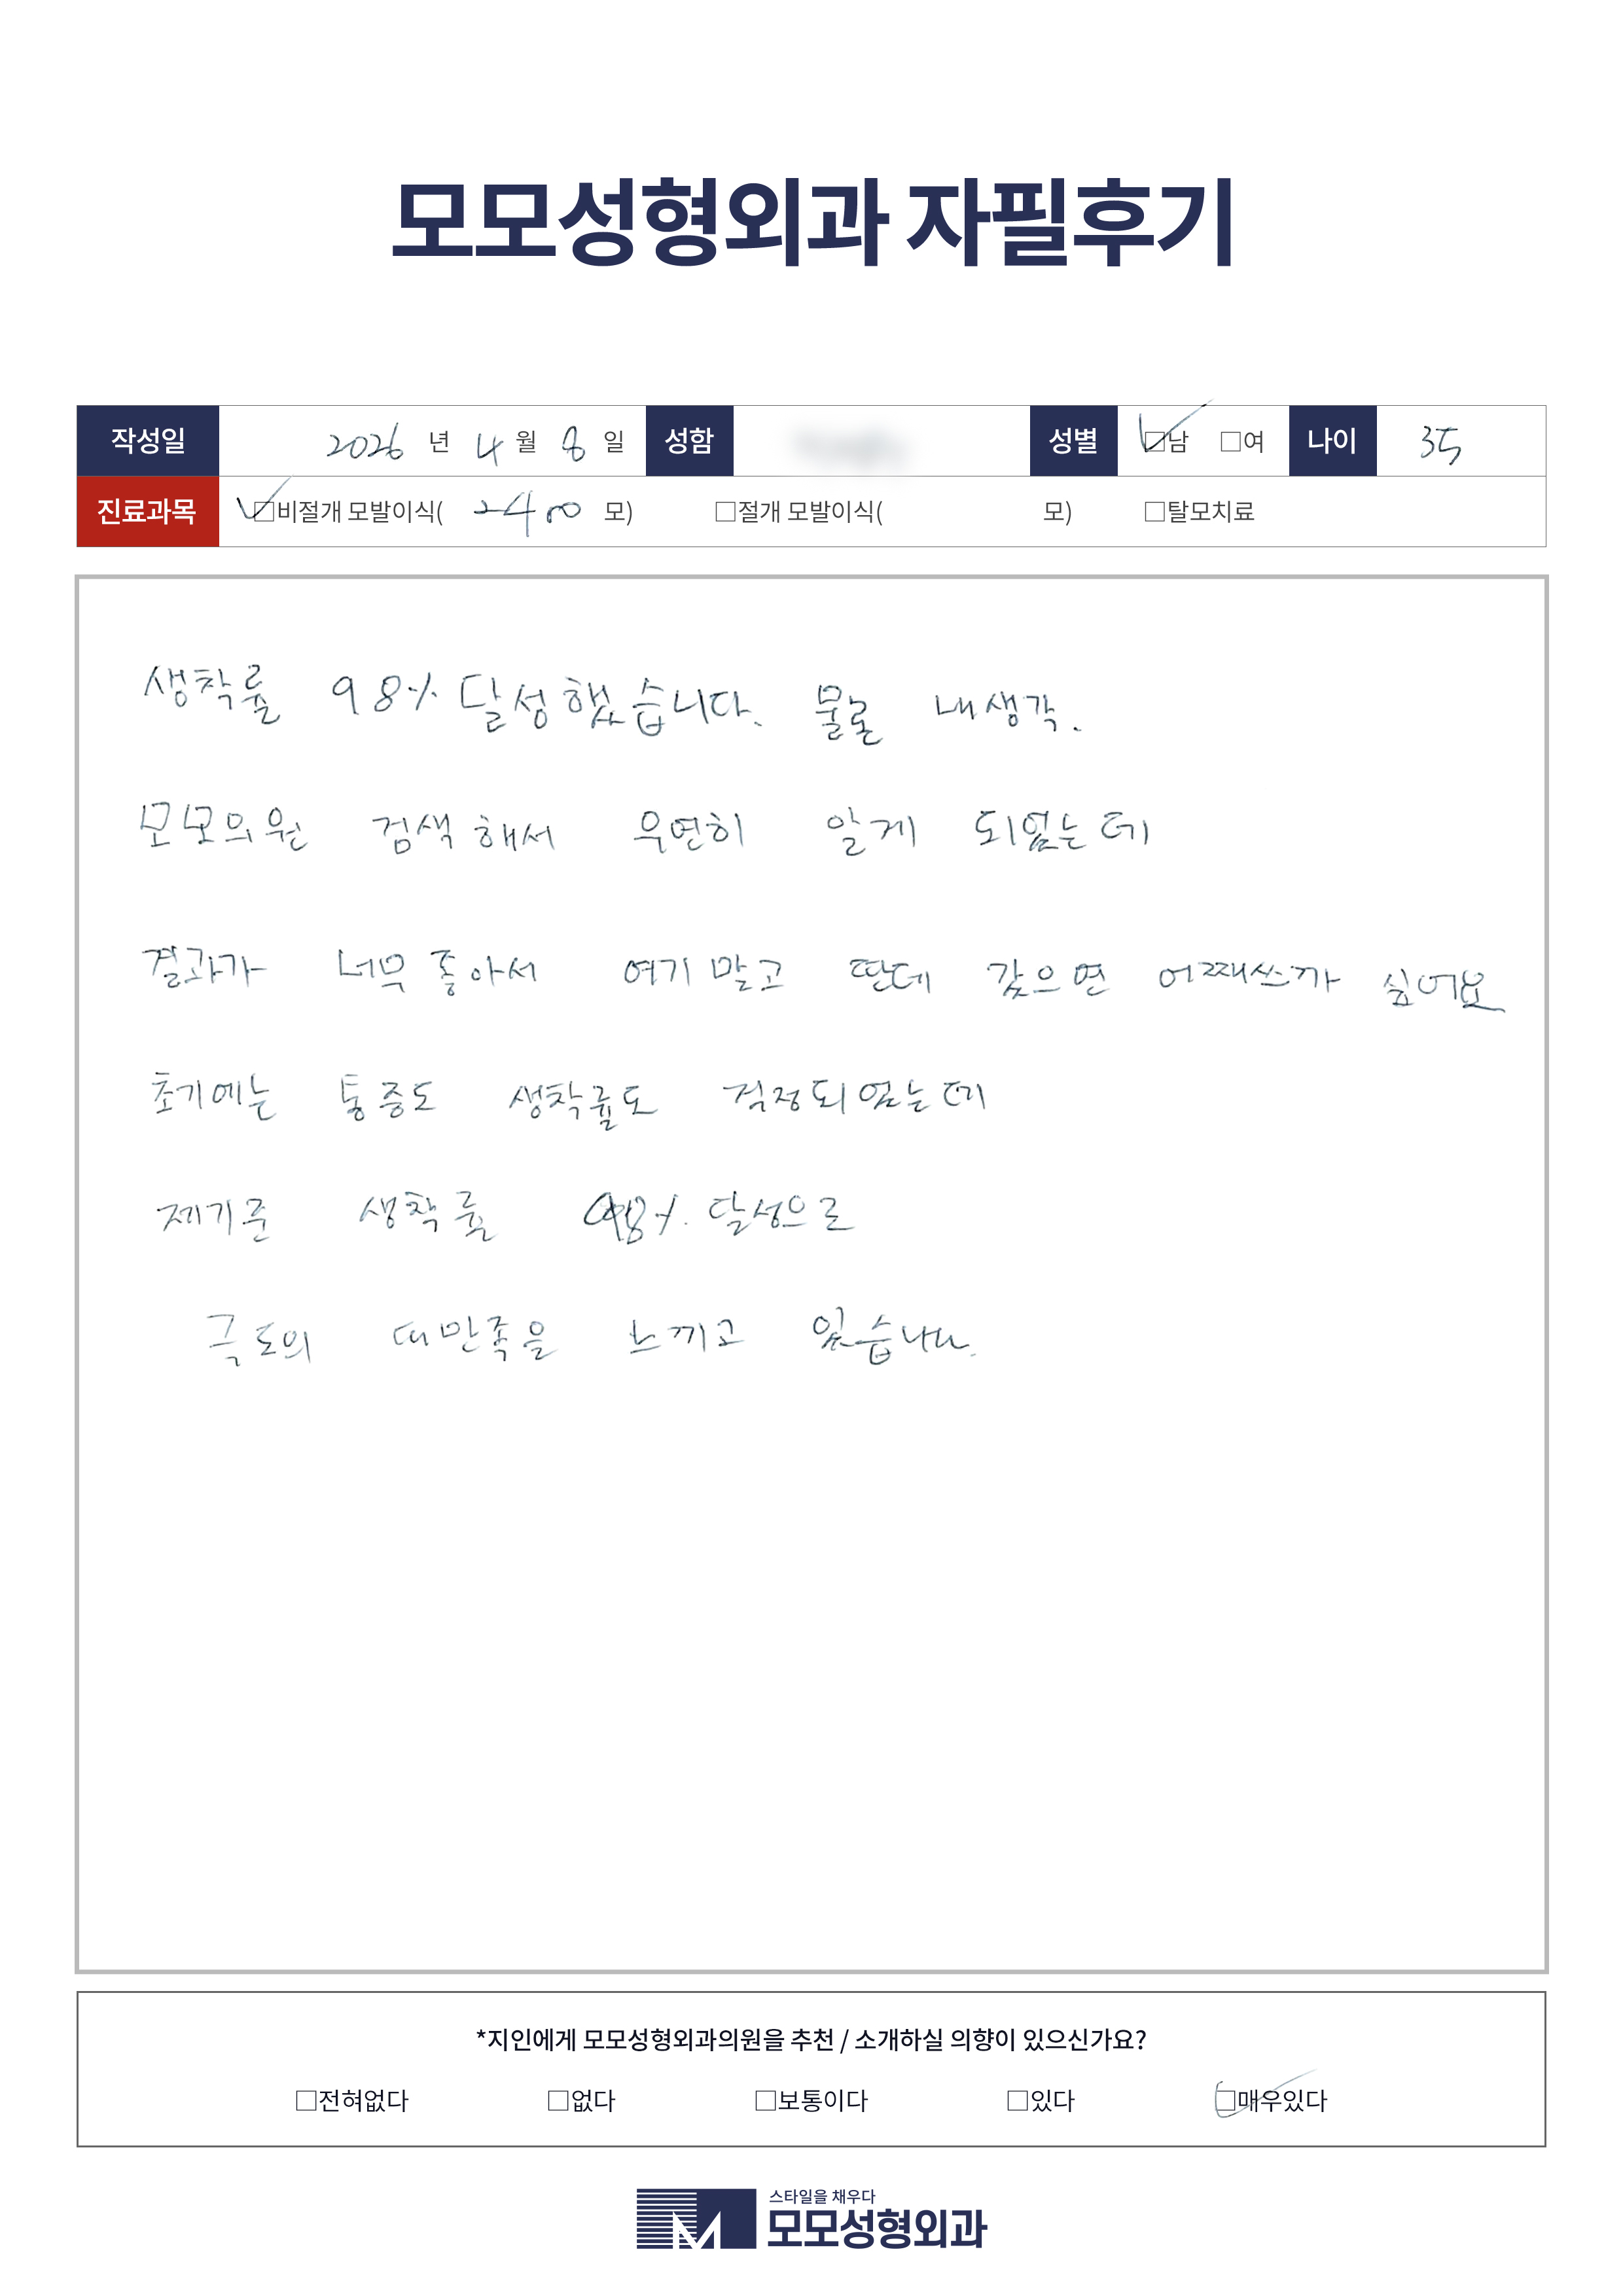 모모성형외과 자필후기
작성일 2026 년 4 월 8 일 성함 성별 □남 □여 나이 35
진료과목 □비절개 모발이식( 2400 모) □절개 모발이식( 모) □탈모치료
생착률 98% 달성했습니다. 물론 내생각.
모모의원 검색해서 우연히 알게 되었는데
결과가 너무 좋아서 여기 말고 딴데 갔으면 어쨰쓰까 싶어요
초기에는 통증도 생착률도 걱정되었는데
제기준 생착률 98% 달성으로
극도의 대만족을 느끼고 있습니다.
*지인에게 모모성형외과의원을 추천 / 소개하실 의향이 있으신가요?
□전혀없다 □없다 □보통이다 □있다 □매우있다
스타일을 채우다
모모성형외과